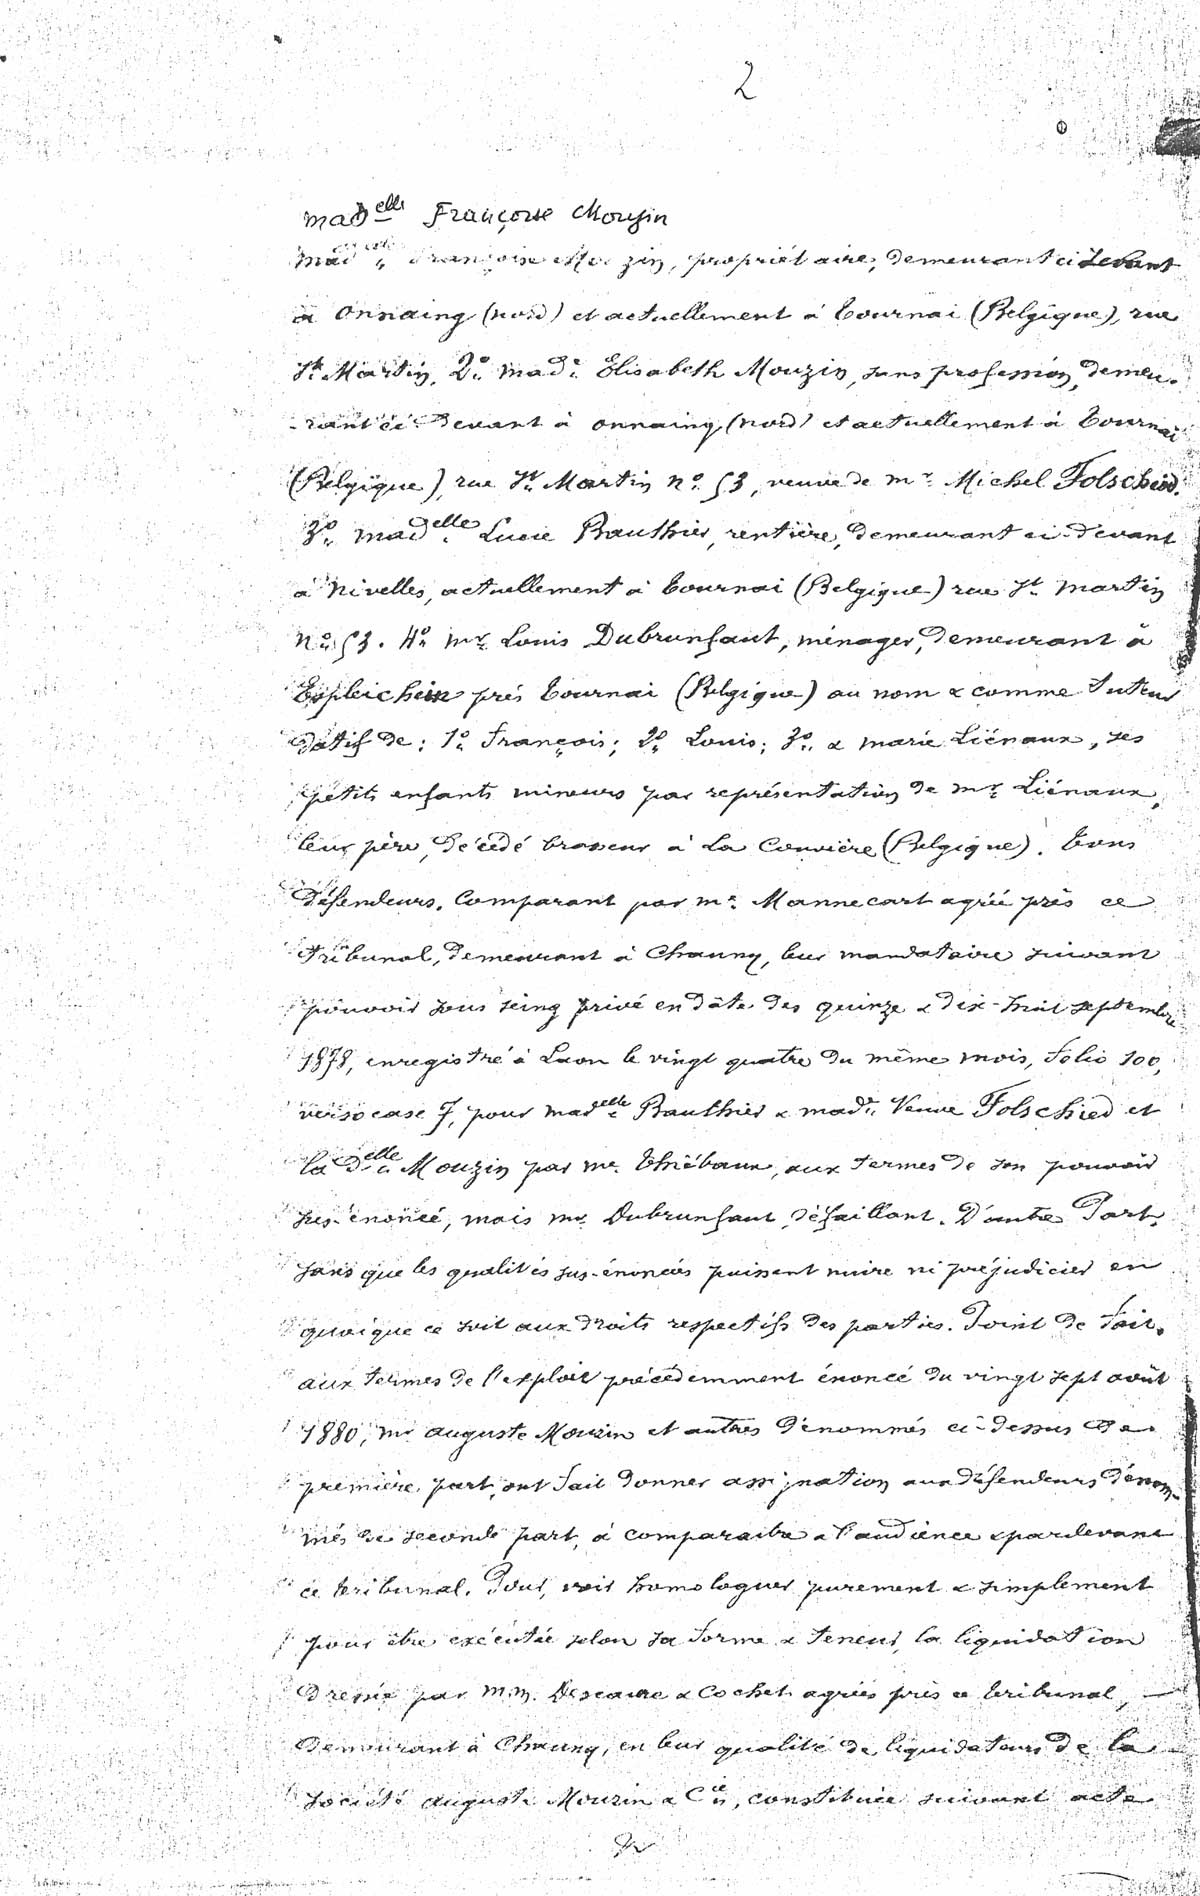 2
madelle Françoise Mouzin
madelle Françoise Mouzin, propriétaire, demeurant ci devant
à onnaing (nord) et actuellement à Tournai (Belgique), rue
St Martin, 2o made Elisabeth Mouzin, sans profession, demeu-
-rant ci-devant à onnaing (nord) et actuellement à Tournai
(Belgique), rue St Martin no 53, veuve de mr Michel Folschied.
3o madelle Lucie Bauthier, rentière, demeurant ci-devant
à Nivelles, actuellement à Tournai (Belgique) rue St martin
no 53. 4o mr Louis Dubrunfaut, ménager, demeurant à
Esplechein près Tournai (Belgique) au nom & comme Tuteur
datif de: 1o François; 2o Louis; 3o & marie Liénaux, ses
petits enfants mineurs par représentation de mr Liénaux,
leur père, décédé brasseur à La Louvière (Belgique). Tous
défendeurs. Comparant par me Mannecart agréé près ce
Tribunal, demeurant à Chauny, leur mandataire suivant
pouvoir sous seing privé en date des quinze & dix-huit septembre
1878, enregistré à Laon le vingt quatre du même mois, folio 100,
verso case 7, pour madelle Bauthier & made Veuve Folschied et
la delle Mouzin par me Thiébaux, aux termes de son pouvoir
sus-énoncé, mais mr Dubrunfaut, défaillant. D'autre Part.
sans que les qualités sus-énoncées puissent nuire ni préjudicier en
quoique ce soit aux droits respectifs des parties. Point de fait.
aux termes de l'exploit précédemment énoncé du vingt sept août
1880, mr auguste Mouzin et autres dénommés ci-dessus de
première part, ont fait donner assignation aux défendeurs dénom-
més de seconde part, à comparaitre à l'audience & pardevant
ce tribunal. Pour, voir homologuer purement & simplement
pour être exécutée selon sa forme & teneur, la liquidation
dressée par m.m. Descaure & Cochet agréés près ce tribunal,
demeurant à Chauny, en leur qualité de liquidateurs de la
société auguste Mouzin & Cie, constituée suivant acte